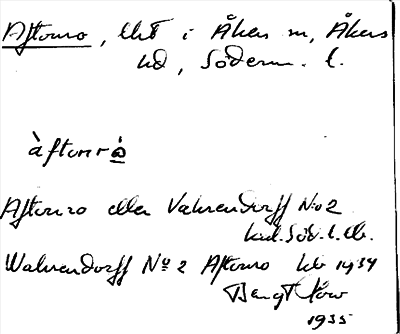 Aftonro, lht i Åkers sn, Åkers
hd, Söderm. l.
àftonrò
Aftonro eller Vahrendorff No 2
Wahrendorff No 2 Aftonro 1934
Bengt
1935